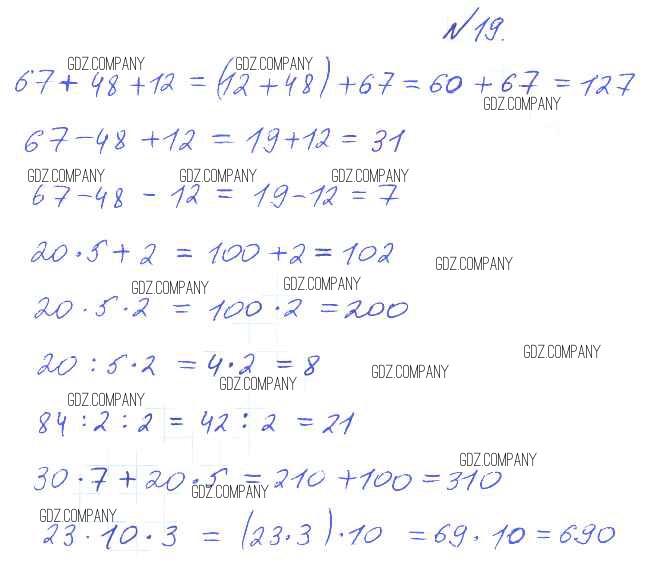 № 19.
GDZ.COMPANY GDZ.COMPANY
67 + 48 + 12 = (12 + 48) + 67 = 60 + 67 = 127
GDZ.COMPANY
67 - 48 + 12 = 19 + 12 = 31
GDZ.COMPANY GDZ.COMPANY GDZ.COMPANY
67 - 48 - 12 = 19 - 12 = 7
20 · 5 + 2 = 100 + 2 = 102
GDZ.COMPANY
GDZ.COMPANY GDZ.COMPANY
20 · 5 · 2 = 100 · 2 = 200
GDZ.COMPANY
20 : 5 · 2 = 4 · 2 = 8
GDZ.COMPANY
GDZ.COMPANY
GDZ.COMPANY
84 : 2 : 2 = 42 : 2 = 21
GDZ.COMPANY
30 · 7 + 20 · 5 = 210 + 100 = 310
GDZ.COMPANY
GDZ.COMPANY
23 · 10 · 3 = (23 · 3) · 10 = 69 · 10 = 690